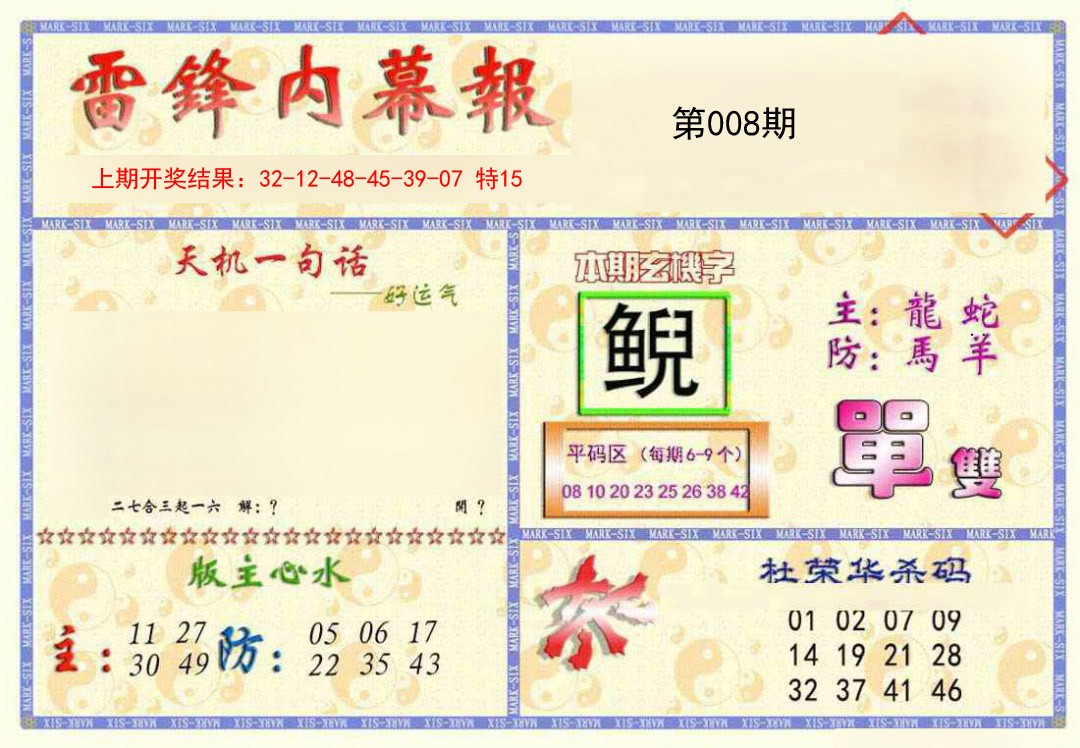 雷鋒内幕報
第008期
上期开奖结果：32-12-48-45-39-07 特15
天机一句话
——好运气
二七合三起一六 解：？ 開？
本期玄機字
鲵
平码区（每期6-9个）
08 10 20 23 25 26 38 42
主：龍 蛇
防：馬 羊
單雙
版主心水
主：11 27 30 49
防：05 06 17 22 35 43
杀
杜荣华杀码
01 02 07 09
14 19 21 28
32 37 41 46
MARK-SIX